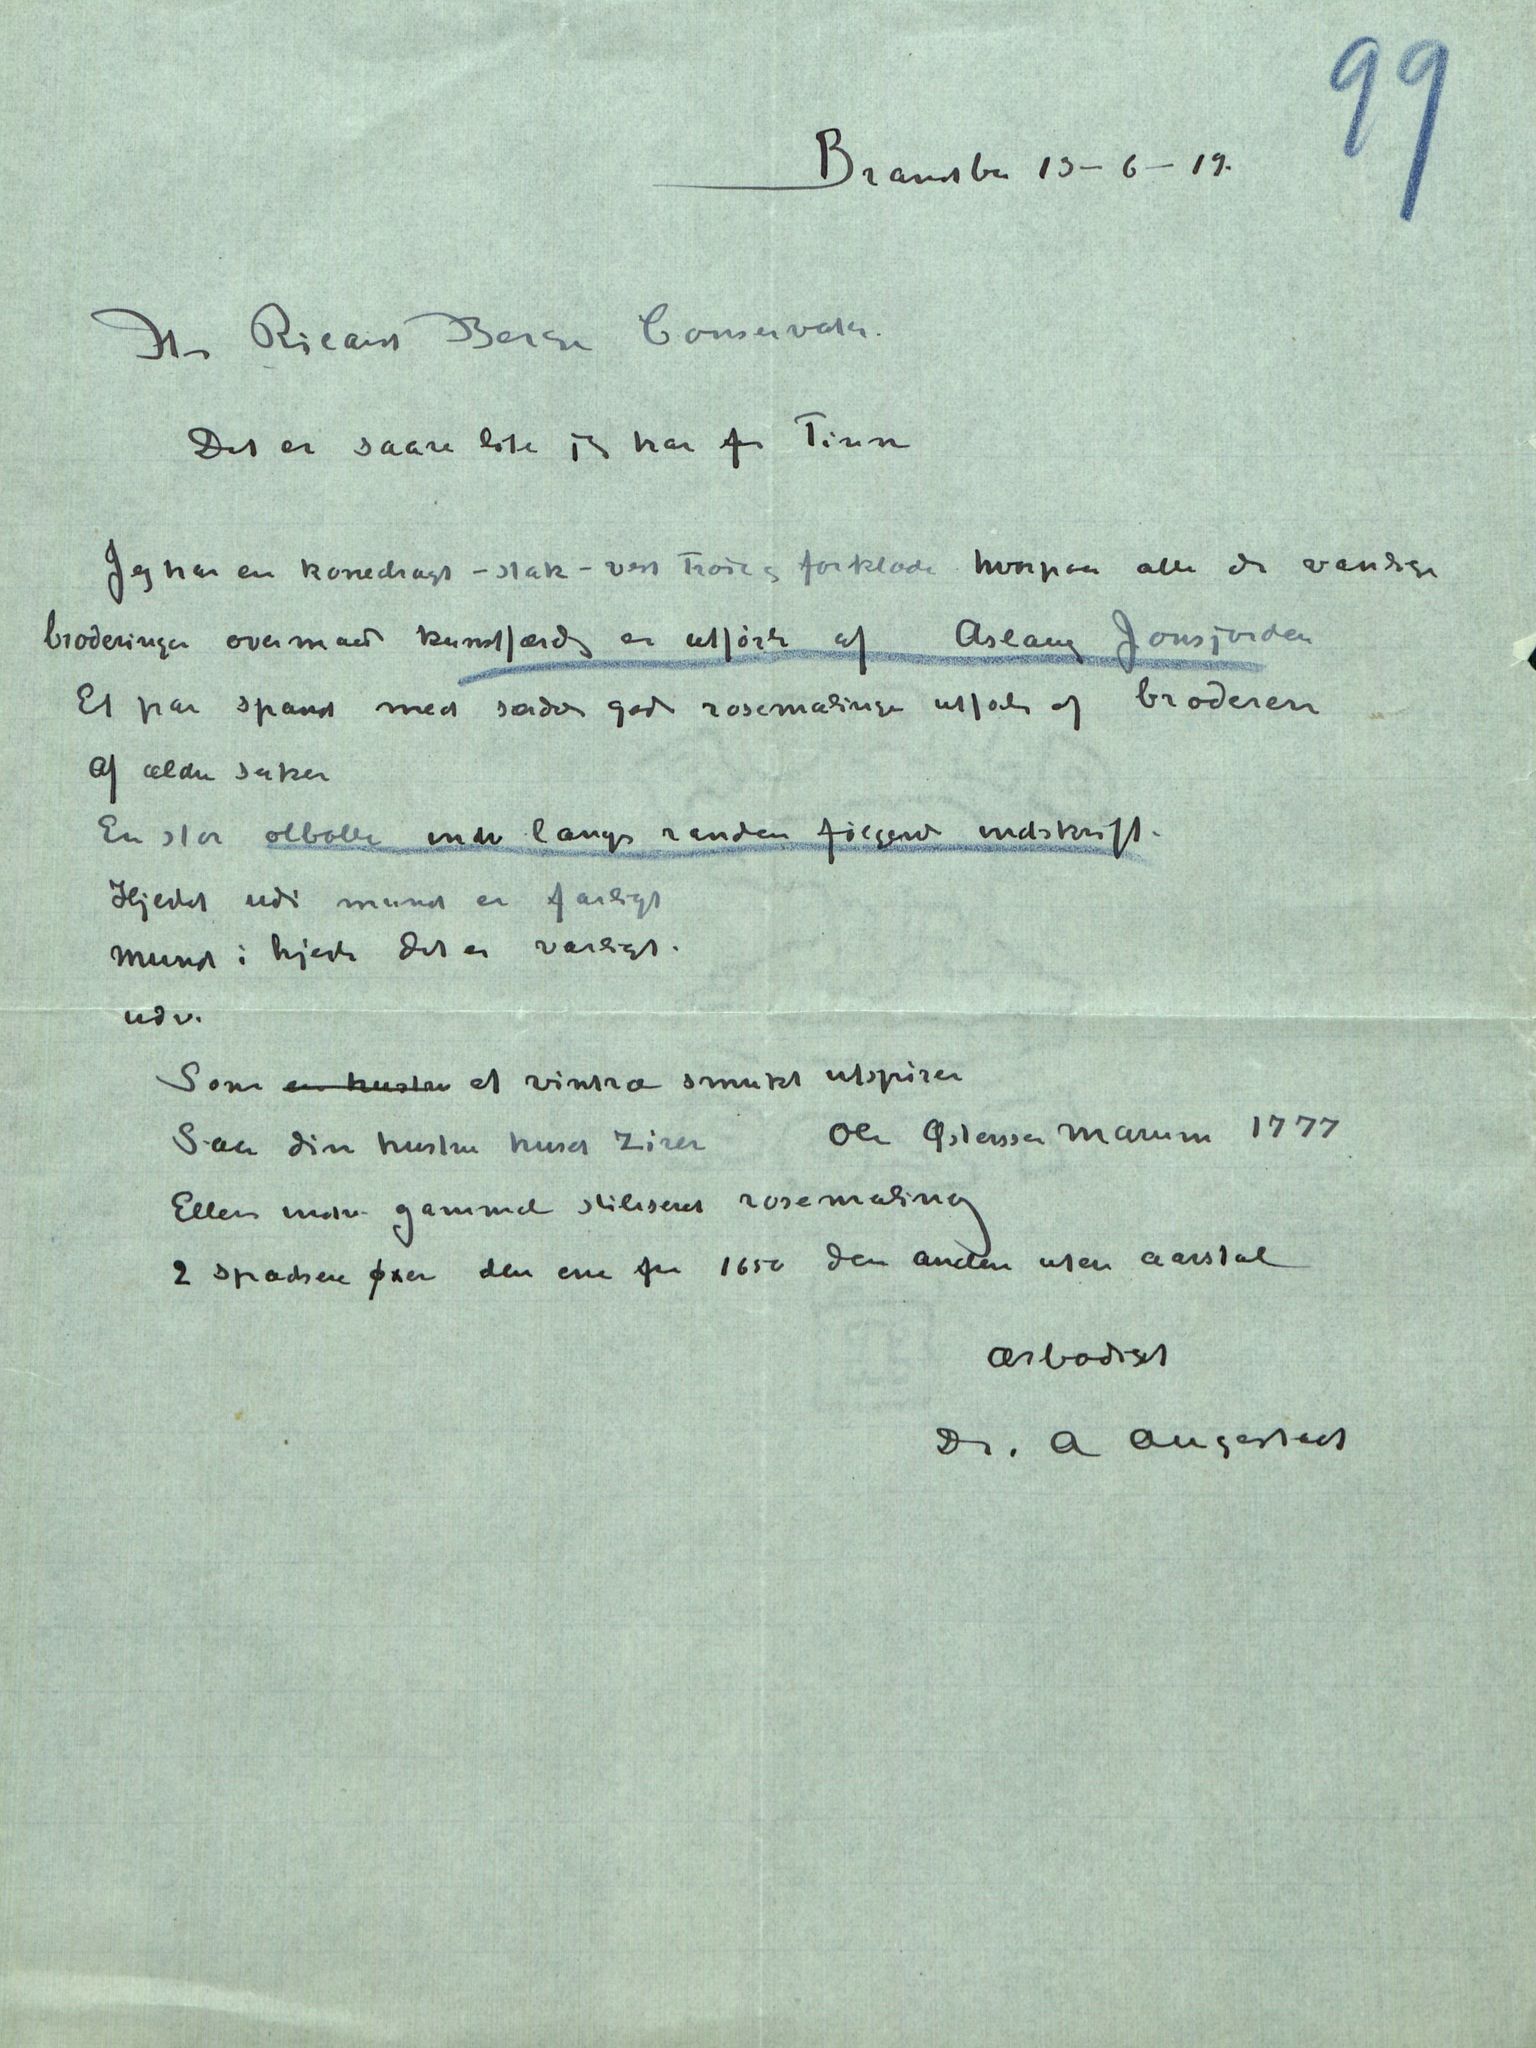 99
Brandsbu 13-6-19.
Hr Ricard Berge Conservator.
Det er saare lite jeg har fra Tinn
Jeg har en konedragt - stak - vest trøie og forklæde hvorpaa alle de vandige
broderinger overmaade kunstfærdig er utført af Aslaug Jonsjorden
Et par spand med sædv god rosemaling utført af broderen
Af ældre saker
En stor ølbolle indv langs randen følgende indskrift.
Hjedet udi mund er farligt
Mund i hjede det er varligt.
udv.
Som en hustru et vintræ smukt utspirer
Saa din hustru huset Zirer Ole Østensen Marum 1777
Ellers indv. gammel stiliseret rosemaling
2 spadsere øxer den ene fra 1650 den anden uten aarstal
Ærbødigst
Dr. A Augestad